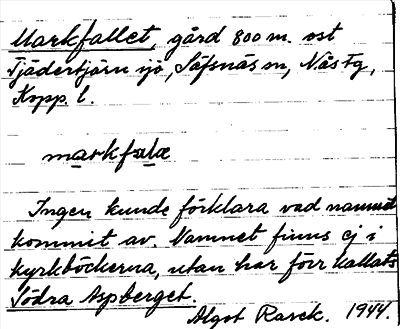 Markfallet, gård 800 m. ost
Tjädertjärn sjö, Säfsnäs sn, Näs Fg,
Kopp. l.
markfalæ
Ingen kunde förklara vad namnet
kommit av. Namnet finns ej i
kyrkböckerna, utan har förr kallats
Södra Aspberget.
Algot Rasck. 1944.